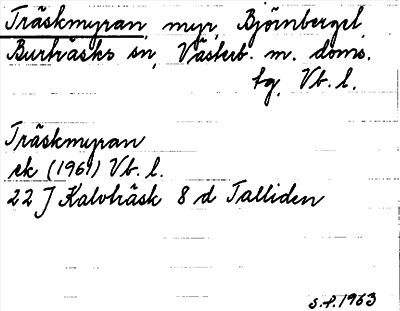 Träskmyran, myr, Björnberget,
Burträsks sn, Västerb. m. doms.
tg, Vb. l.
Träskmyran
ek (1961) Vb. l.
22 J Kalvträsk 8 d Talliden
S.f. 1963